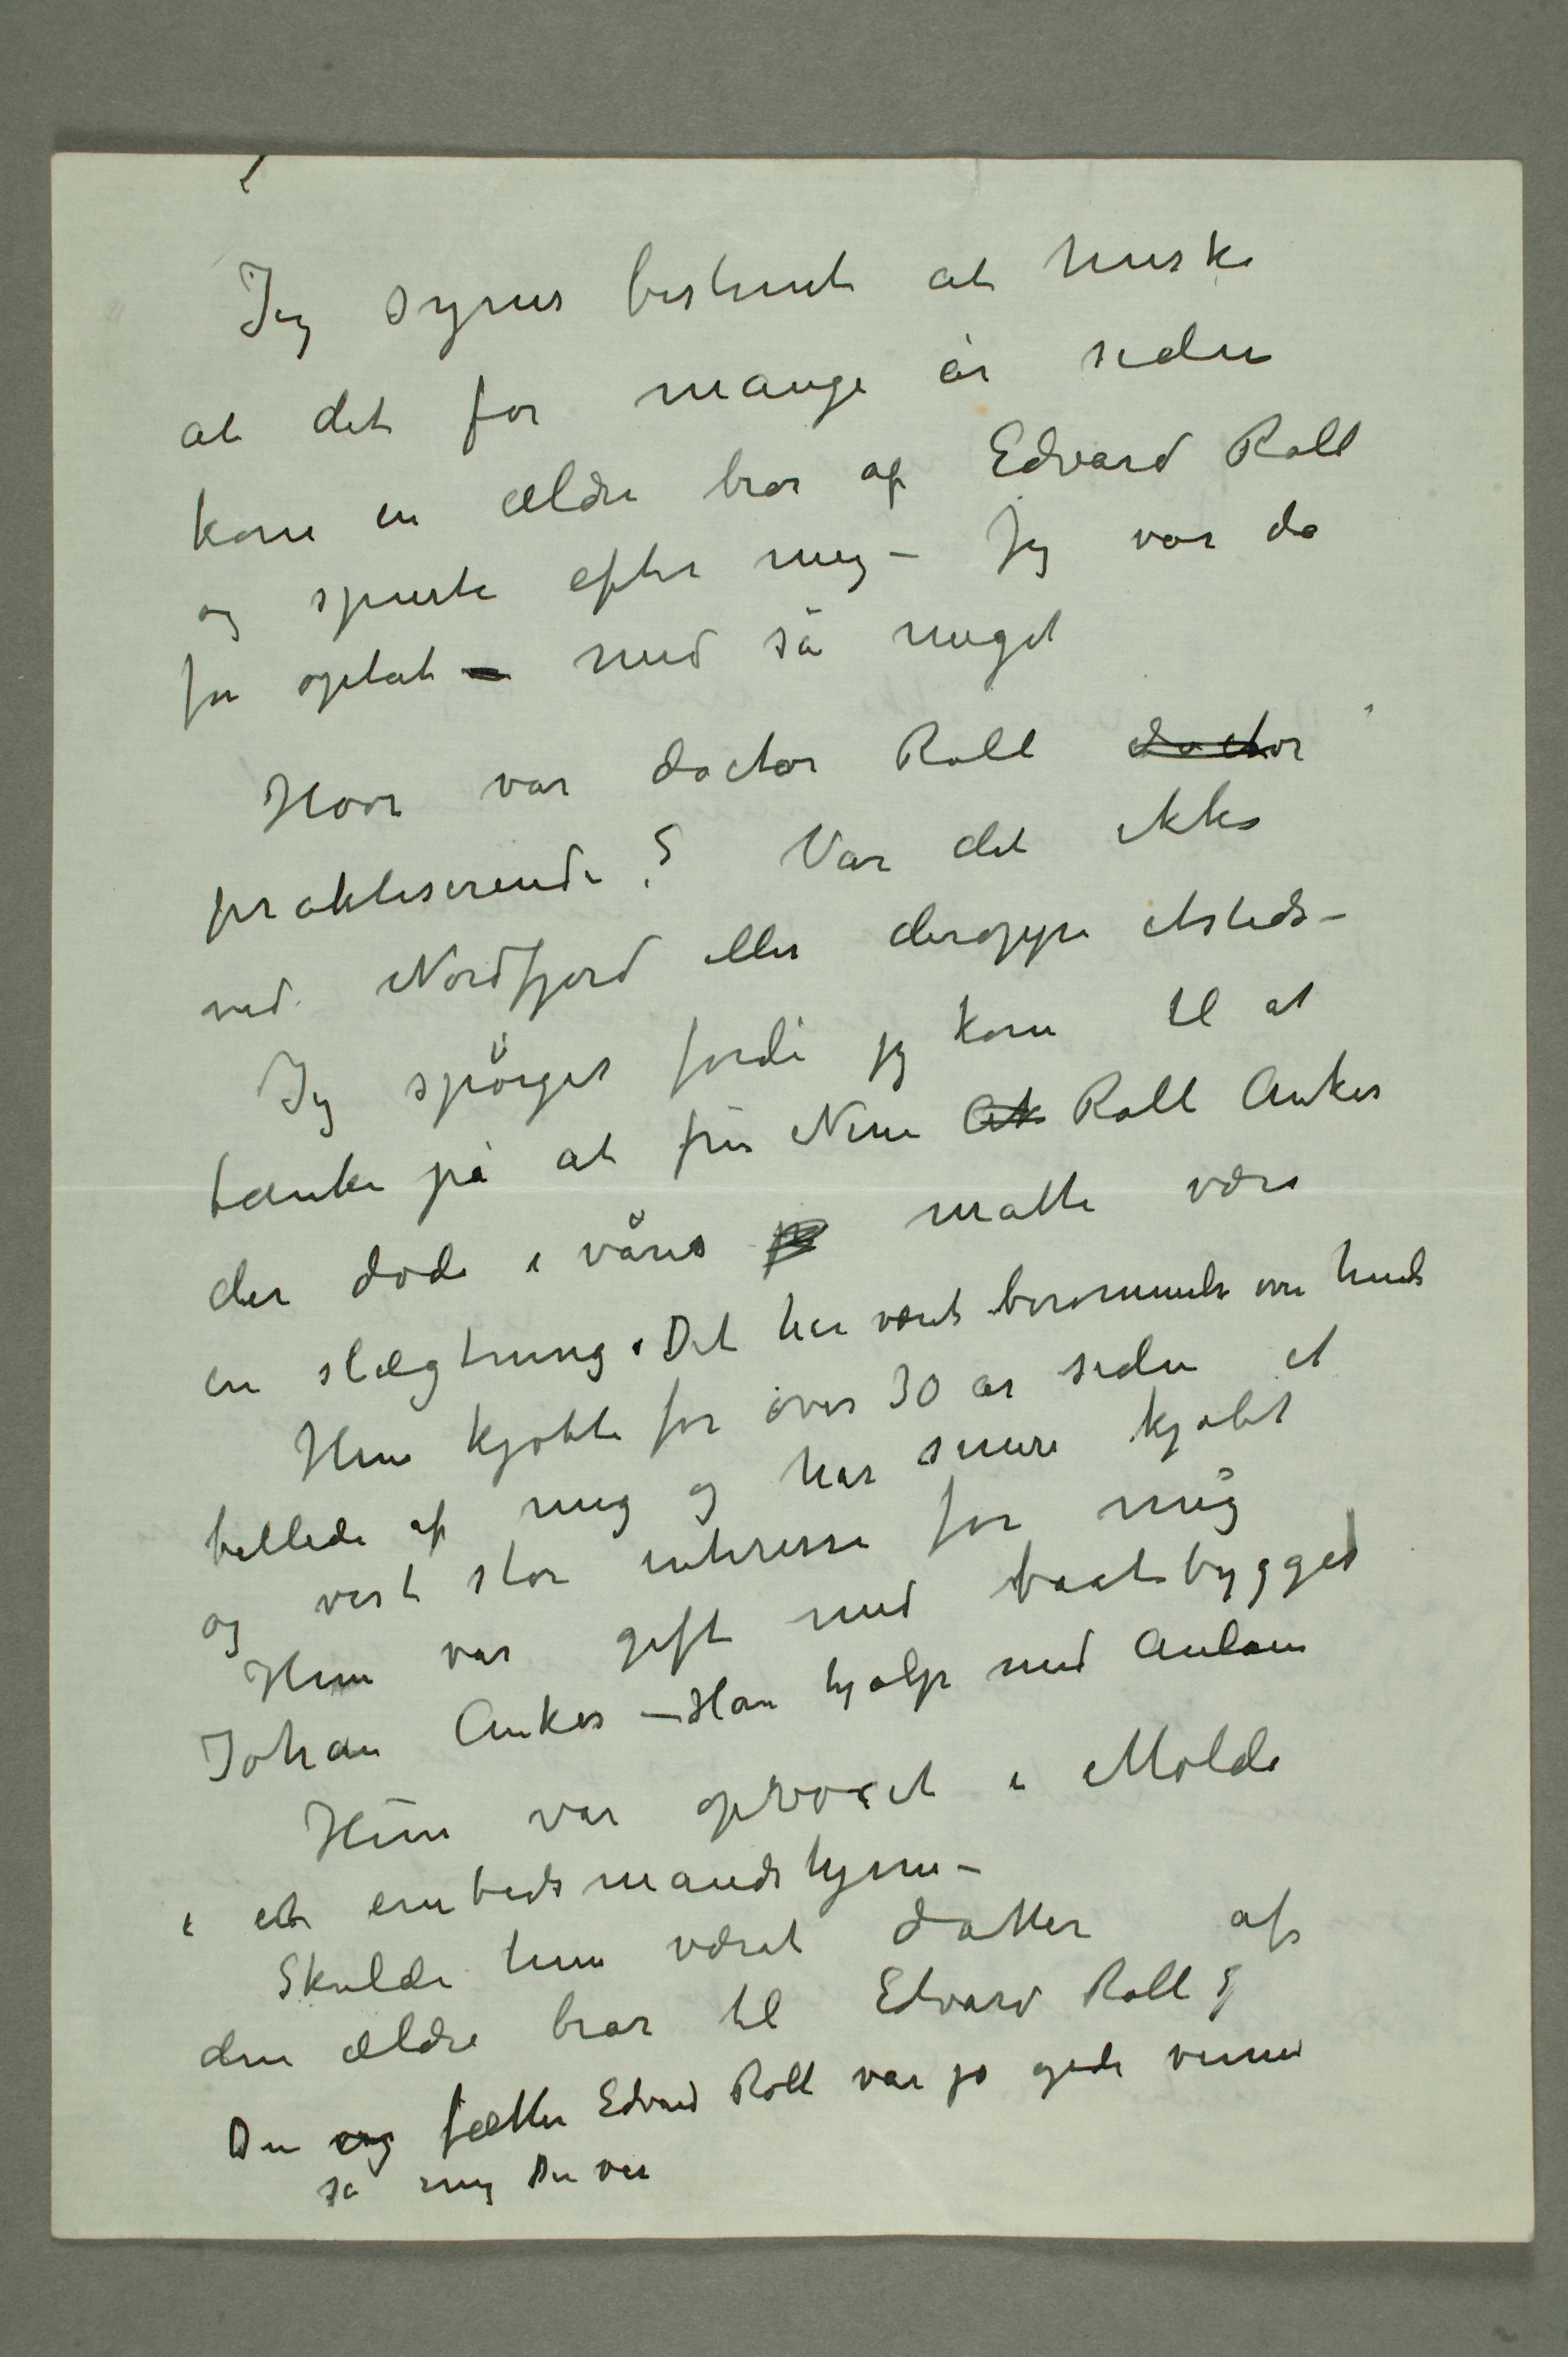 Jeg synes bestemt at huske
at det for mange år siden
kom en ældre bror af Edvard Roll
og spurte efter meg – Jeg var da
for optat – med så meget
Hvor var doctor Roll doctor
praktiserende? Var det ikke
ved Nordfjord eller deroppe etsteds –
Jeg spörger fordi jeg kom til at
tænke på at fru Nini Roll Anker
der döde i våres måtte være
en slægtning. Det har været berömmelse over hende
Hun kjöbte for over 30 år siden et
billede af meg og har senere kjöbt
og vist stor interesse for meg
Hun var gift med baatbygger
Johan Anker – Han hjalp med Aulaen
Hun var opvoxet i Molde
i et embedsmandshjem –
Skulde hun været datter af
den ældre bror til Edvard Roll?
Du og fætter Edvard Roll var jo gode venner
så
Du var